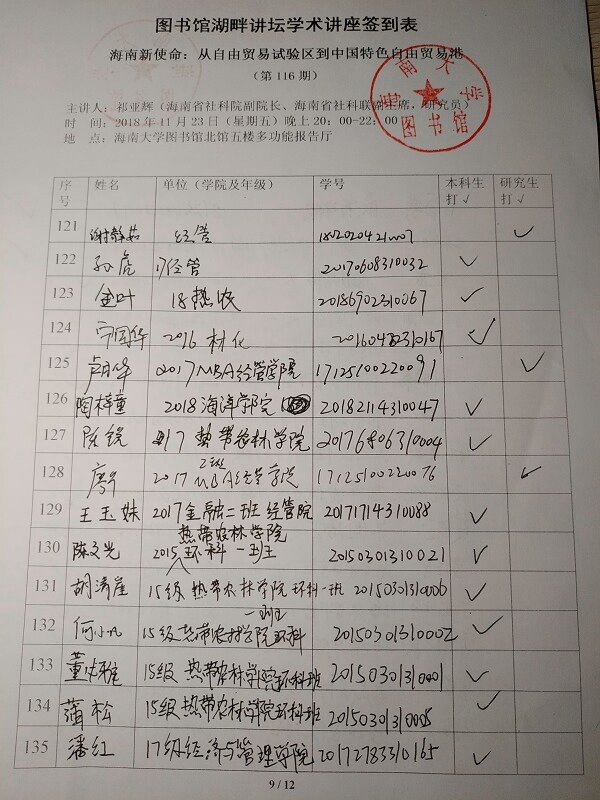 图书馆湖畔讲坛学术讲座签到表
海南新使命：从自由贸易试验区到中国特色自由贸易港
（第 116 期）
主讲人：祁亚辉（海南省社科院副院长、海南省社科联副主席，研究员）
时 间：2018 年 11 月 23 日（星期五）晚上 20：00-22：00
地 点：海南大学图书馆北馆五楼多功能报告厅
海南大学
图书馆
序号 姓名 单位（学院及年级） 学号 本科生打√ 研究生打√
121 谢静茹 经管 √
122 孙虎 17经管 20170608310032 √
123 金叶 18热农 20186902310067 √
124 宁国华 2016 材化 √
125 卢月华 2017MBA经管学院 17125100220091 √
126 陶梓童 2018海洋学院 20182114310047 √
127 陈锐 17 热带农林学院 20176806310004 √
128 2017 二班 MBA经管学院 17125100220076 √
129 王玉妹 2017金融二班 经管院 20171714310088 √
130 陈文光 2015 热带农林学院 环科一班 20150301310021 √
131 胡清崖 15级热带农林学院环科一班 20150301310006 √
132 何小凡 15级热带农林学院环科一班 20150301310002 √
133 15级 热带农林学院环科班 20150301310001 √
134 蒲松 15级热带农林学院环科班 20150301310005 √
135 潘红 17级经济与管理学院 20172783310165 √
9 / 12